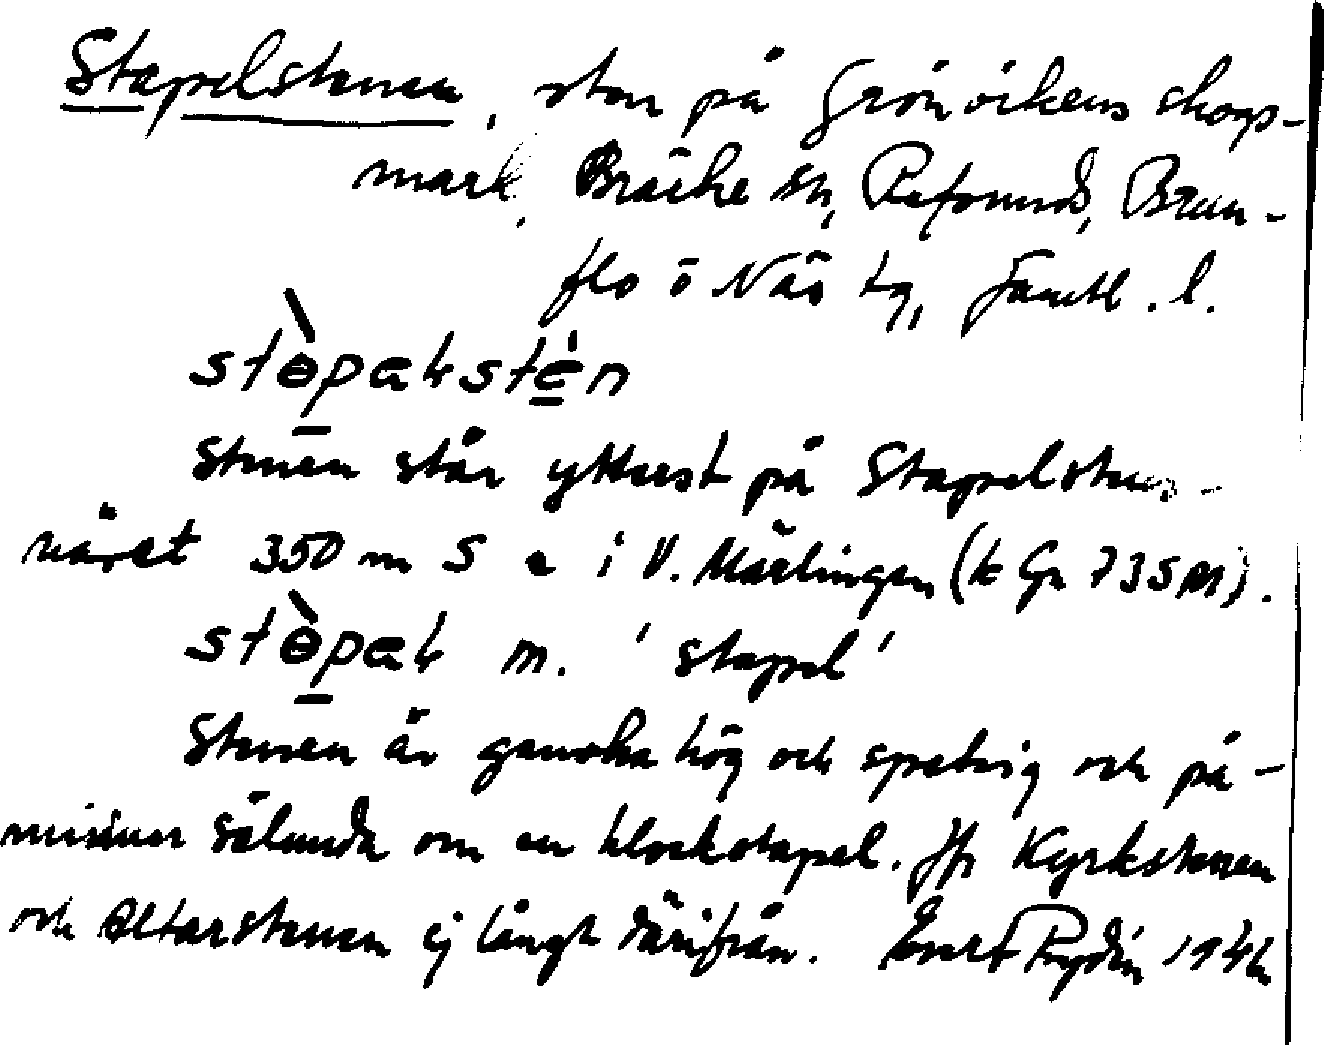 Stapelstenen, sten på Grönvikens skogs-
mark, Bräcke sn, Refsunds, Brun-
flo o Näs tg, Jämtl. l.
stɵ̀pakstén
Stenen står ytterst på Stapelstens-
näset 350 m S i V. Märlingen (k Gr 735 m).
stɵ̀pak m. 'stapel'
Stenen är ganska hög och spetsig och på-
minner sålunda om en klockstapel. Jfr Kyrkstenen
och Altarstenen ej långt därifrån. Evert Rydin